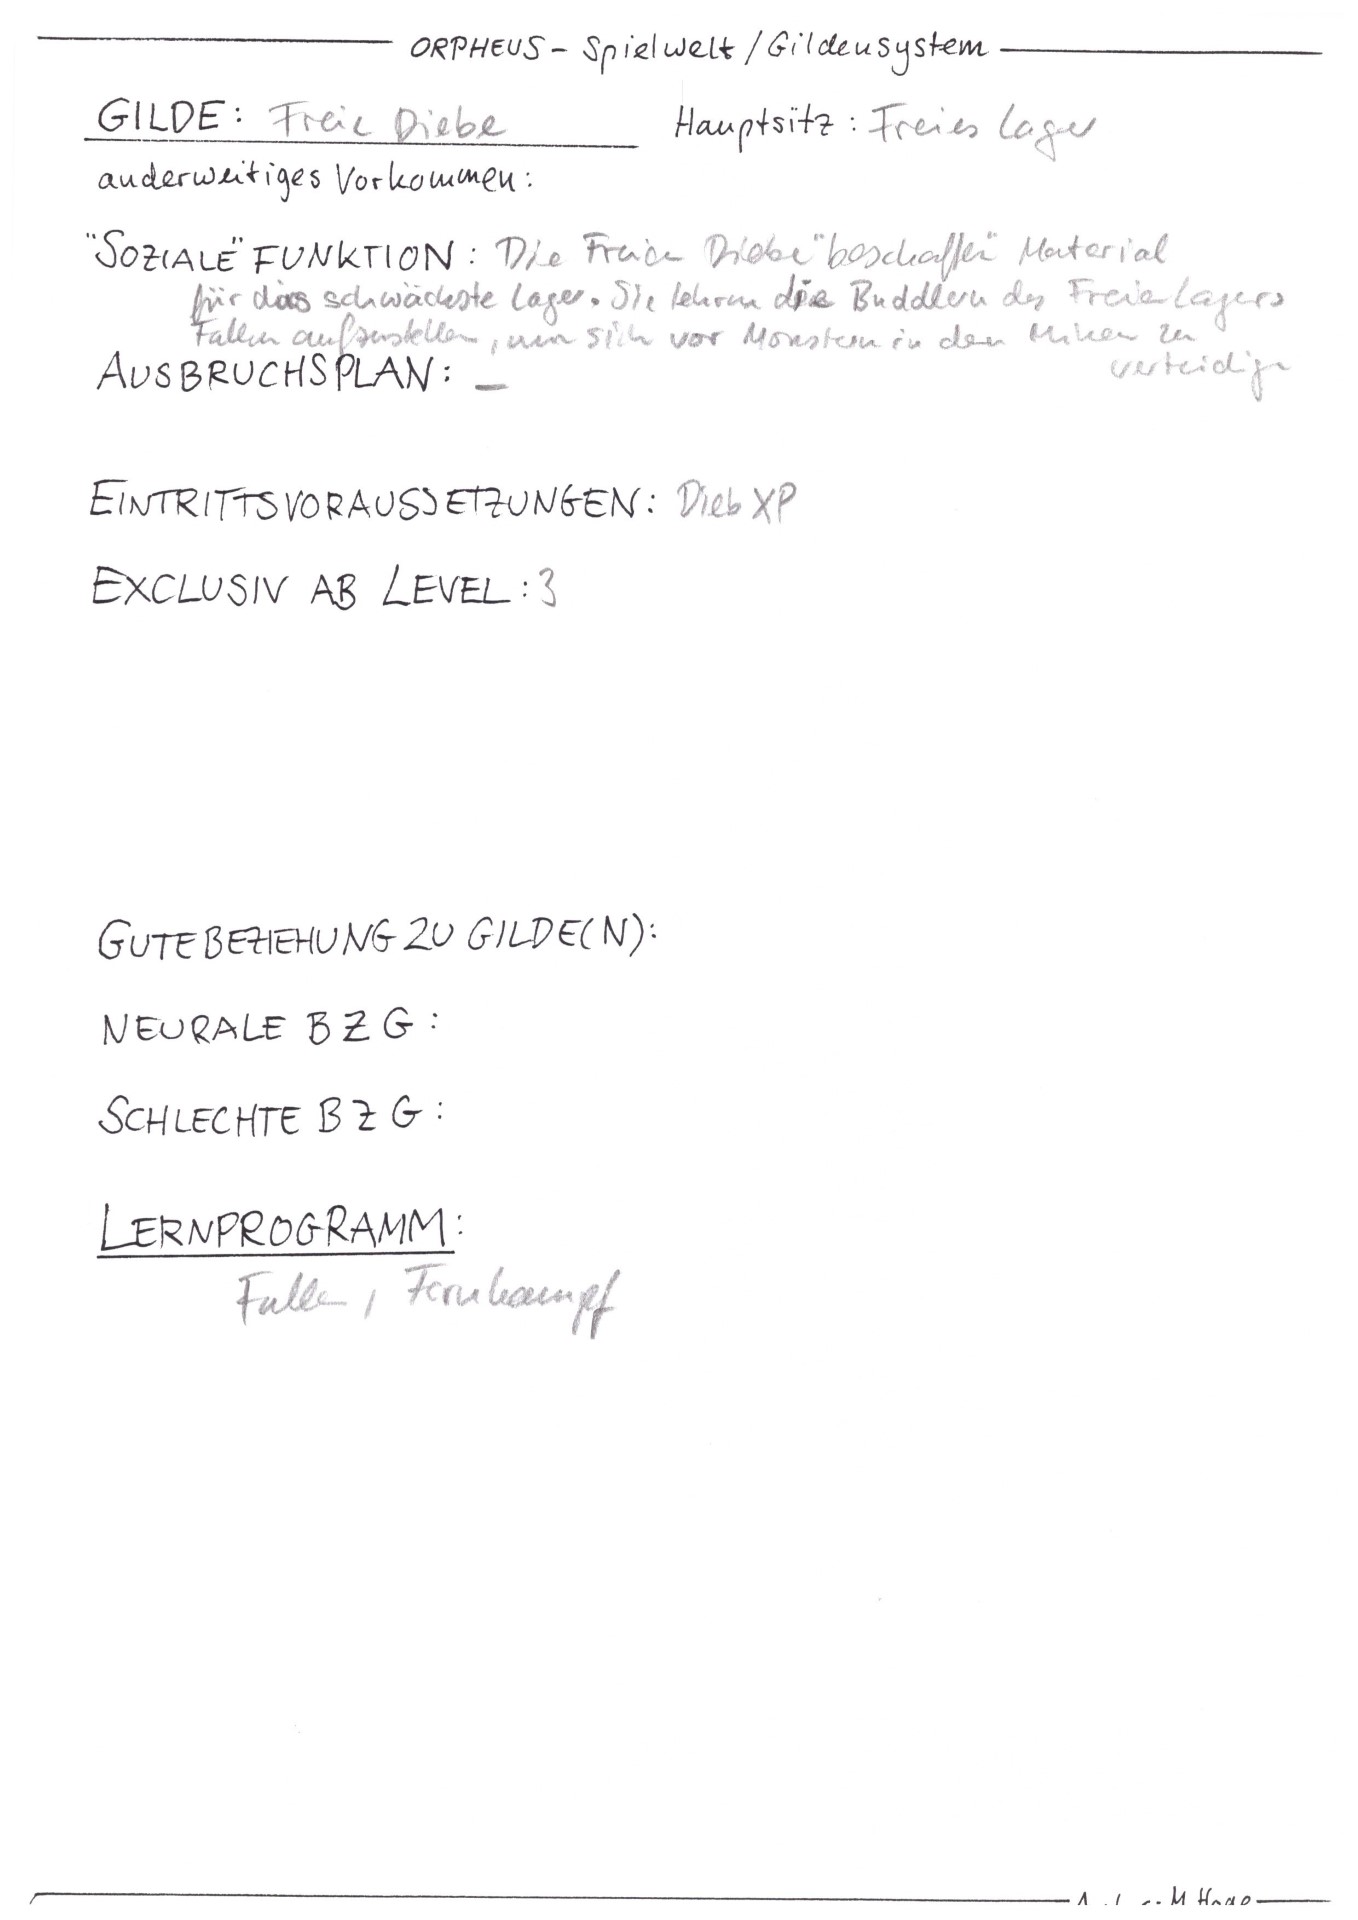 ORPHEUS - Spielwelt / Gildensystem
GILDE: Freie Diebe Hauptsitz: Freies Lager
anderweitiges Vorkommen:
"SOZIALE" FUNKTION: Die Freien Diebe "beschaffen" Material
für das schwächste Lager. Sie lehren die Buddlern des Freien Lagers
Fallen aufzustellen, um sich vor Monstern in den Minen zu
verteidigen
AUSBRUCHSPLAN: —
EINTRITTSVORAUSSETZUNGEN: Dieb XP
EXCLUSIV AB LEVEL: 3
GUTE BEZIEHUNG ZU GILDE(N):
NEURALE B Z G:
SCHLECHTE B Z G:
LERNPROGRAMM:
Fallen, Fernkampf